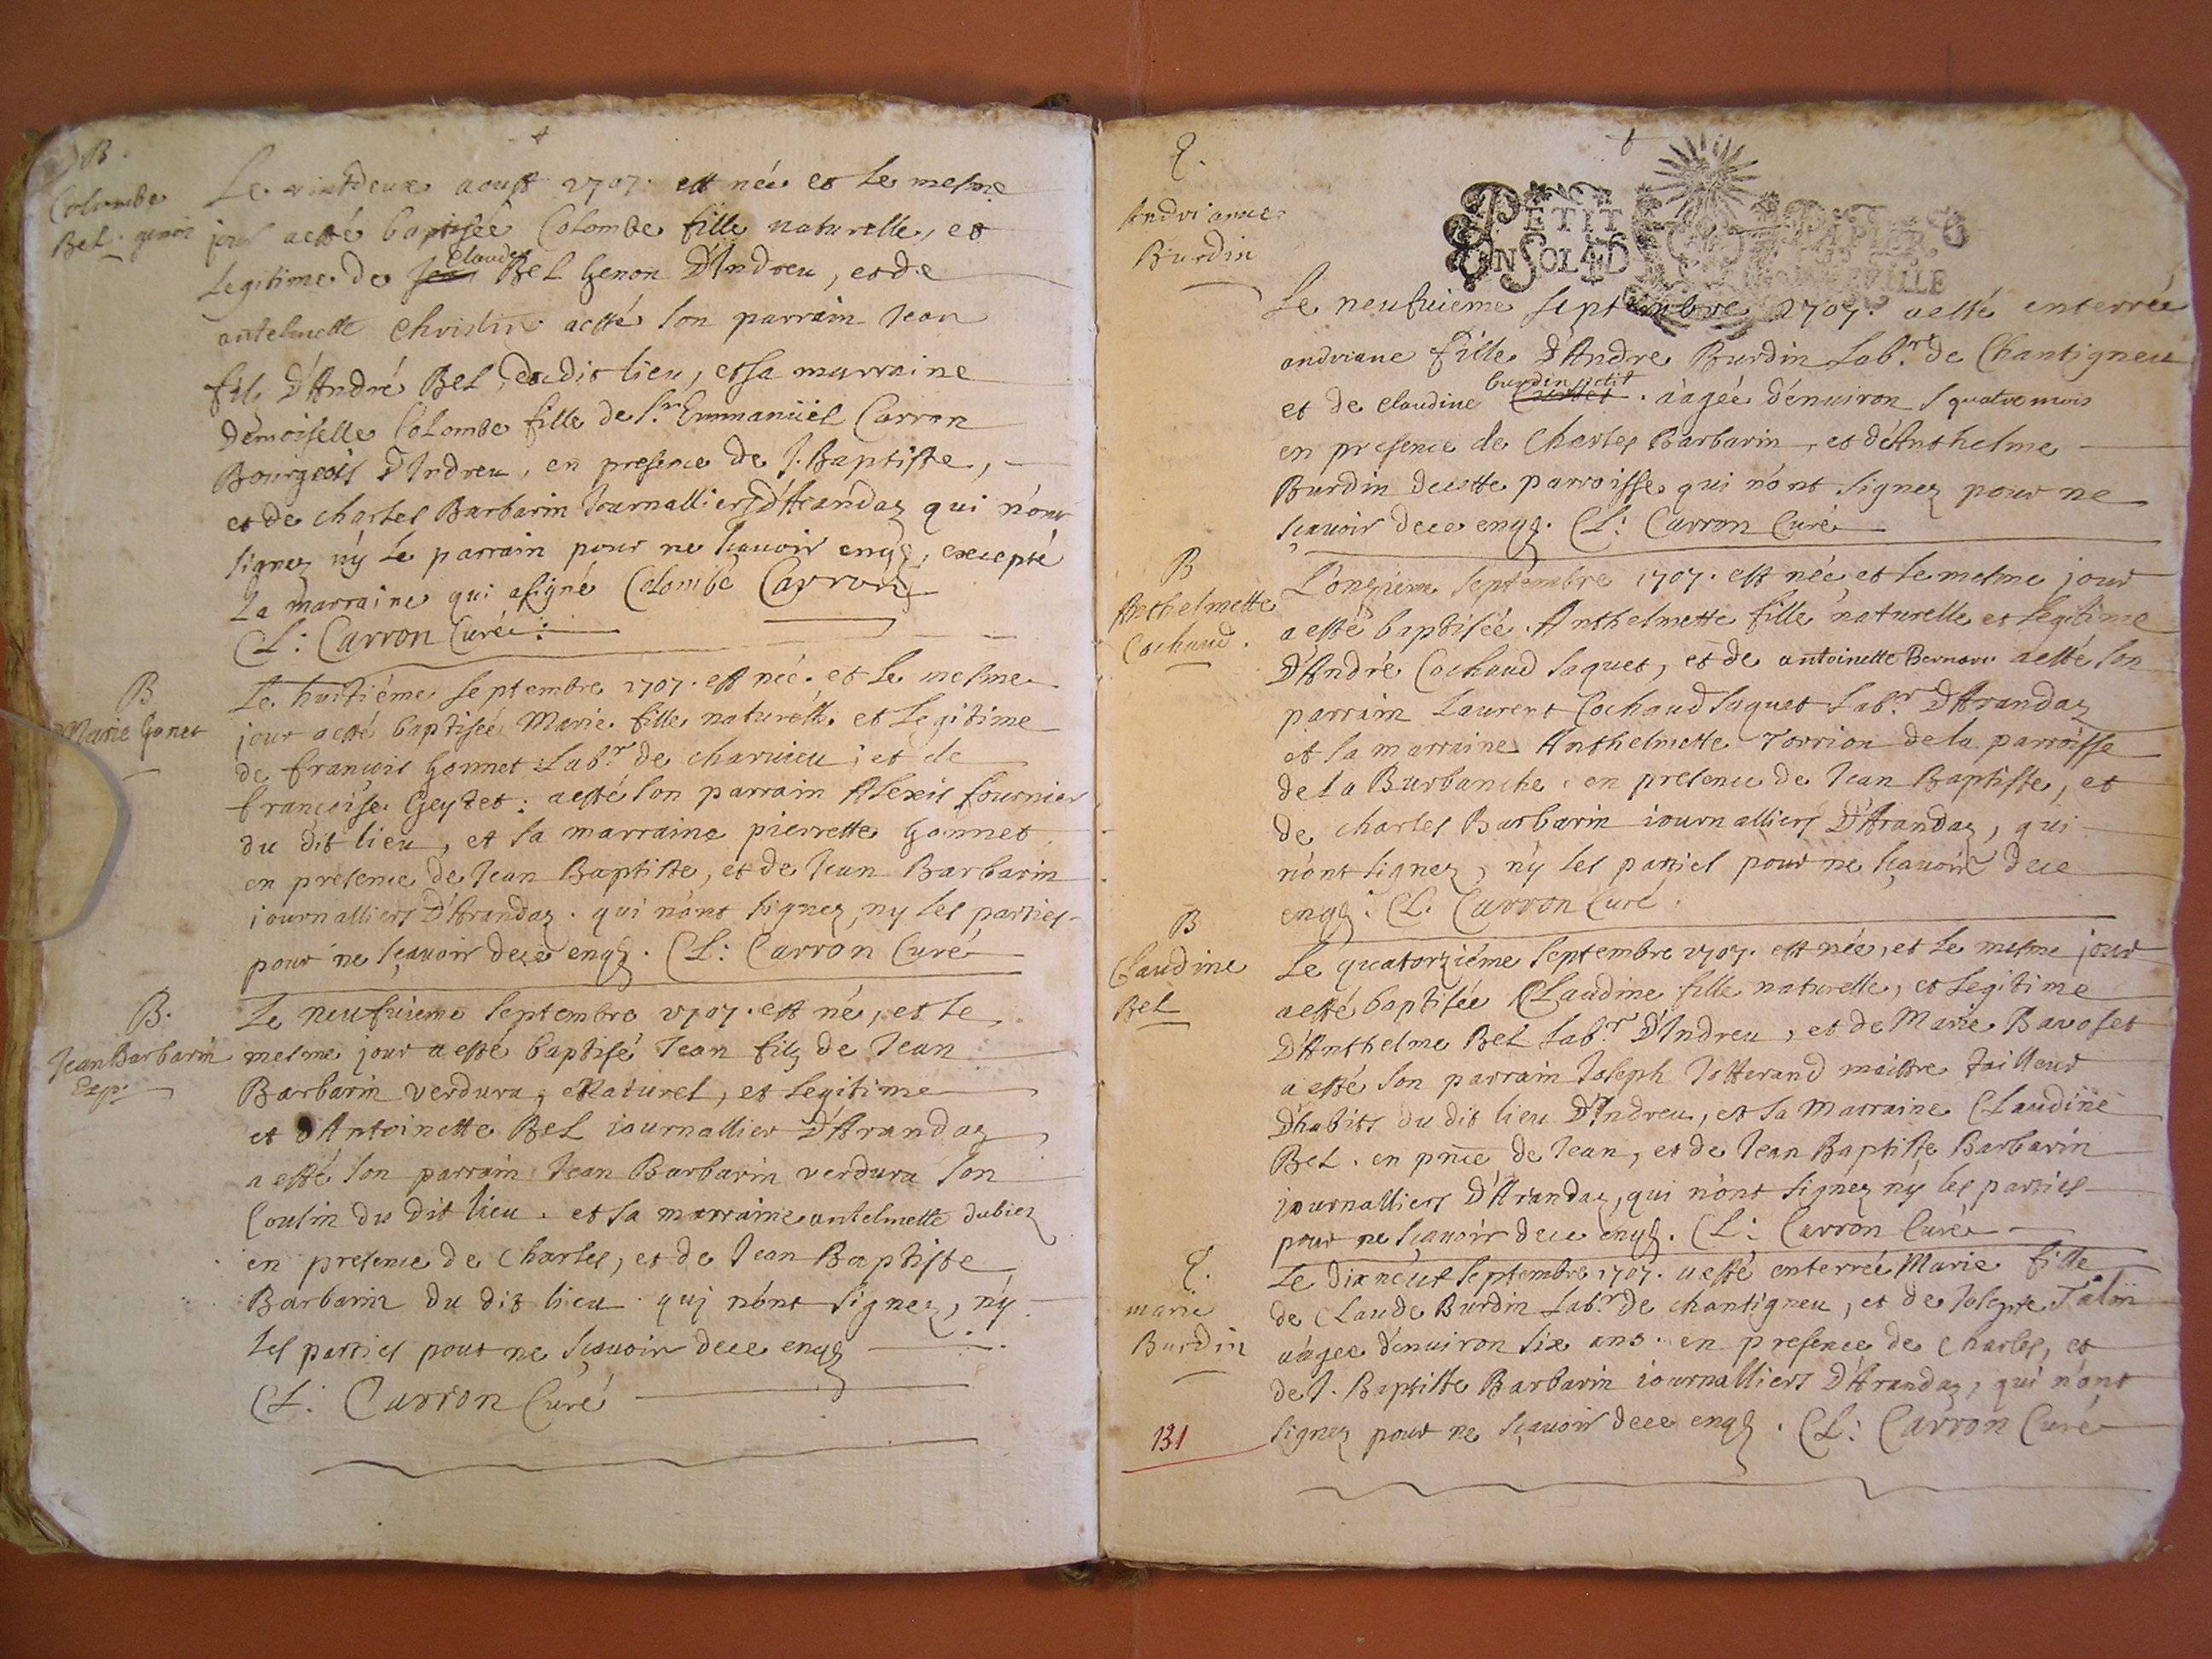 B.
Colombe
Bel. genon
Le vintdeux aoust 1707. est née et le mesme
jour aesté baptisée Colombe fille naturelle, et
Claude
legitime de Jean Bel Genon D'Indreu, et de
antelmette Christin aesté son parrain Jean
fils D'André Bel, dudit lieu, et sa marraine
demoiselle Colombe fille de Sr. Emmanüel Carron
Bourgeois D'Indreu, en presence de J. Baptiste,
et de charles Barbarin Journalliers D'Arandaz qui n'ont
signez n'y le parrain pour ne sçavoir enqs, excepté
la marraine qui asigné Colombe Carron
CL: Carron Curé.
B
Marie Gonet
Le huitiéme septembre 1707. est née. et le mesme
jour aesté baptisée Marie. fille naturelle et legitime
de françois Gonnet Labr. de charvieu; et de
françoise Geydet: aesté son parrain Alexis fournier
du dit lieu, et sa marraine pierrette Gonnet
en presence de Jean Baptiste, et de Jean Barbarin
journalliers D'Arandaz. qui n'ont signez, ny les parties
pour ne sçavoir dece enqs. CL: Carron Curé
B.
Jean Barbarin
Exp.
Le neufuieme septembre 1707. est né, et le
mesme jour a esté baptisé Jean filz de Jean
Barbarin verdura, naturel, et legitime
et D'Antoinette Bel iournallier D'Arandaz
a esté son parrain Jean Barbarin verdura son
Cousin du dit lieu. et sa marraine antelmette dubiez
en presence de Charles, et de Jean Baptiste
Barbarin du dit lieu qui n'ont signez, n'y
les parties pour ne sçavoir dece enqs
CL: Carron Curé
E.
Andrianne
Burdin
PETIT PAPIER
UN SOL 4 D
Le neufuieme septembre 1707. aesté enterrée
andriane fille D'Andre Burdin Labr. de Chantigneu
burdin petit
et de claudine . aàgée d'enuiron quatre mois
en presence de Charles Barbarin, et d'Anthelme
Burdin decette parroisse qui n'ont signez pour ne
sçavoir dece enqs. CL: Carron Curé
B
Anthelmette
Cochaud.
L'onzieme septembre 1707. est née et le mesme jour
a esté baptisée. Anthelmette fille naturelle et legitime
D'André Cochaud Jaquet, et de antoinette Bernard aesté son
parrain Laurent Cochaud Jaquet Labr. D'Arandaz
et sa marraine Anthelmette Torrion dela parroisse
de la Burbanche. en presence de Jean Baptiste, et
de charles Barbarin iournalliers D'Arandaz, qui
n'ont signez, n'y les parties pour ne sçavoir dece
enqs. CL: Carron Curé.
B
Claudine
Bel
Le quatorziéme septembre 1707. est née, et le mesme jour
aesté baptisée Claudine fille naturelle, et legitime
D'Anthelme Bel Labr. D'Indreu, et de Marie Bavoset
a esté son parrain Joseph Jotterand maistre tailleur
D'habits du dit lieu D'Indreu, et sa Marraine Claudine
Bel. en pnce de Jean, et de Jean Baptiste Barbarin
journalliers D'Arandaz, qui n'ont signez n'y les parties
pour ne sçavoir dece enqs. CL: Carron Curé
E.
marie
Burdin
Le dixneuf septembre 1707. aesté enterrée Marie fille
de Claude Burdin Labr. de chantigneu, et de Josepte Talon
aàgee d'enuiron six ans. en presence de Charles, et
de J. Baptiste Barbarin iournalliers D'Arandaz, qui n'ont
signez pour ne sçavoir dece enqs. CL: Carron Curé
131